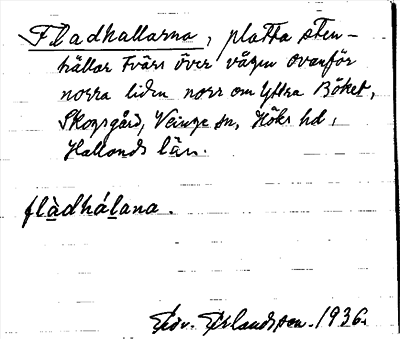 Fladhallarna, platta sten-
hällar tvärs över vägen ovanför
norra liden norr om Yttra Böket,
Skogsgård, Veinge sn, Höks hd,
Hallands län.
flàdhálana.
Edv. Erlandsson. 1936.